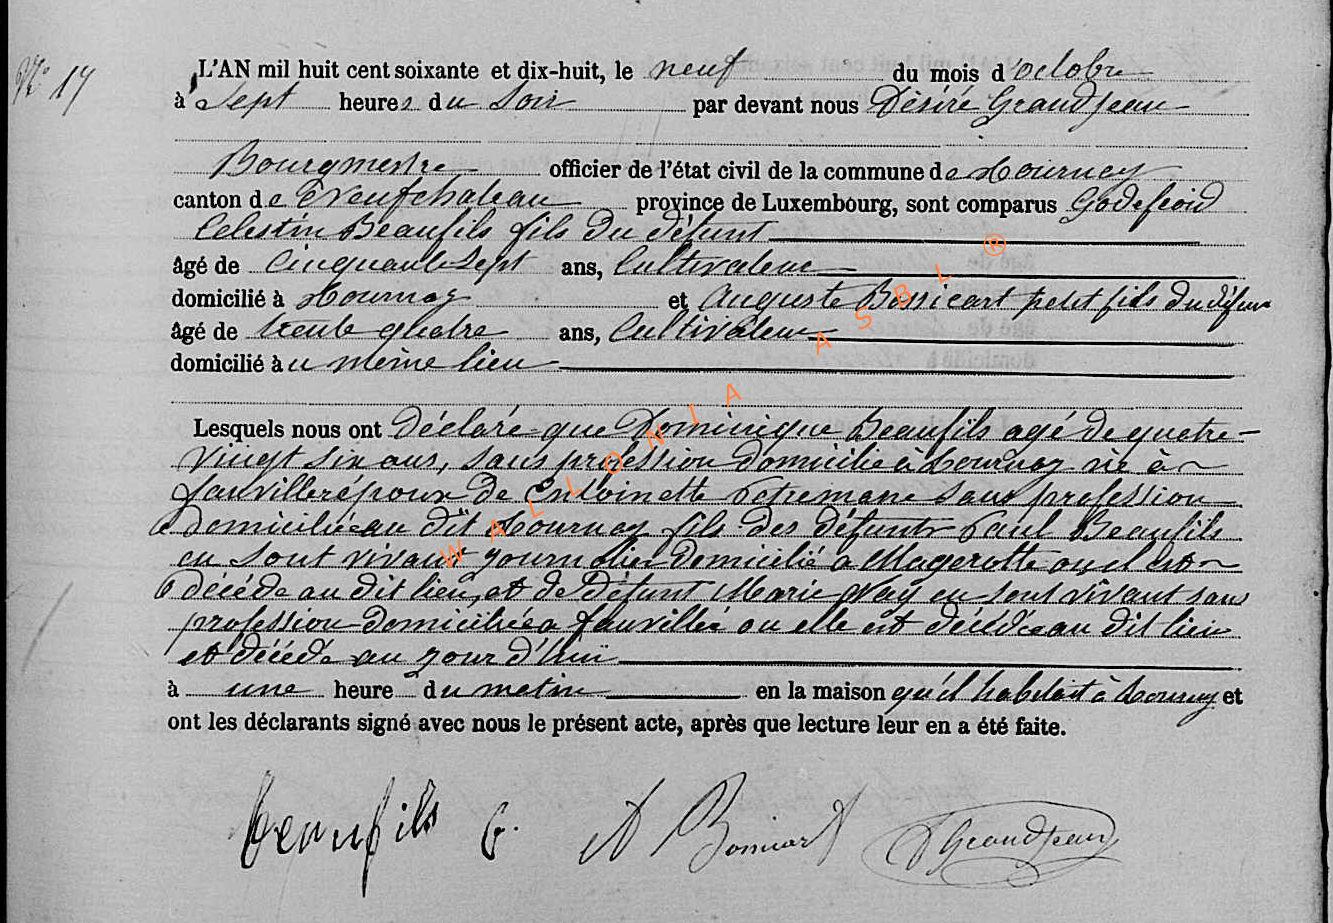 N° 17
L'AN mil huit cent soixante et dix-huit, le neuf du mois d'octobre
à Sept heures du Soir par devant nous Désiré Grandjean
Bourgmestre officier de l'état civil de la commune de Hournay
canton de Neufchateau province de Luxembourg, sont comparus Godefroid
Celestin Beaufils fils du défunt
âgé de Cinquante Sept ans, Cultivateur
domicilié à Hournay et Auguste Bossicart petit fils du défunt
âgé de trente quatre ans, Cultivateur
domicilié au même lieu
Lesquels nous ont déclaré que Dominique Beaufils agé de quatre-
vingt six ans, sans profession domicilié à Hournay né à
fauvillers époux de Entoinette sans profession
domiciliée au dit Hournay fils des défunts Paul Beaufils
en sont vivant journalier domicilié a Magerotte ou il est
décédé au dit lieu, et de défunt Marie Way en sont vivant sans
profession domiciliée a fauvillée ou elle est décédée au dit lieu
et décédé au jour d'hui
à une heure du matin en la maison qu'il habitait à Hournay et
ont les déclarants signé avec nous le présent acte, après que lecture leur en a été faite.
beaufils G. A Bossicart D Grandjean
WALLONIA ASBL ®